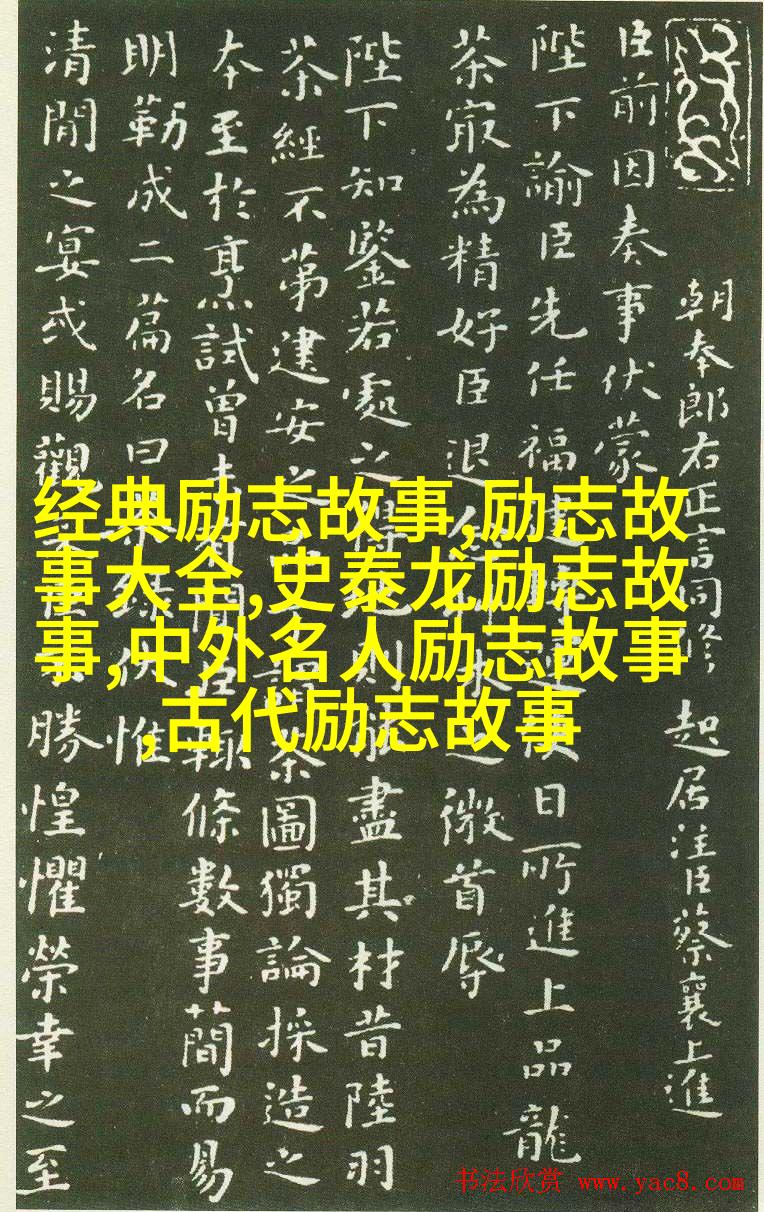 朝奉郎右正言同修起居注臣蔡襄上進
臣前因奏事伏蒙
陛下諭臣先任福建轉運使日所進上品龍
茶㝡為精好臣退念草木之微首辱
陛下知鑒若處之得地則能盡其材昔陸羽
茶經不第建安之品丁謂茶圖獨論採造之
本至於烹試曾未有聞臣輒條數事簡而易
明勒成二篇名曰茶錄伏惟
清閒之宴或賜觀采臣不勝惶懼榮幸之至
经典励志故事,励志故
事大全,史泰龙励志故
事,中外名人励志故事
,古代励志故事
书法欣赏 www.yac8.com